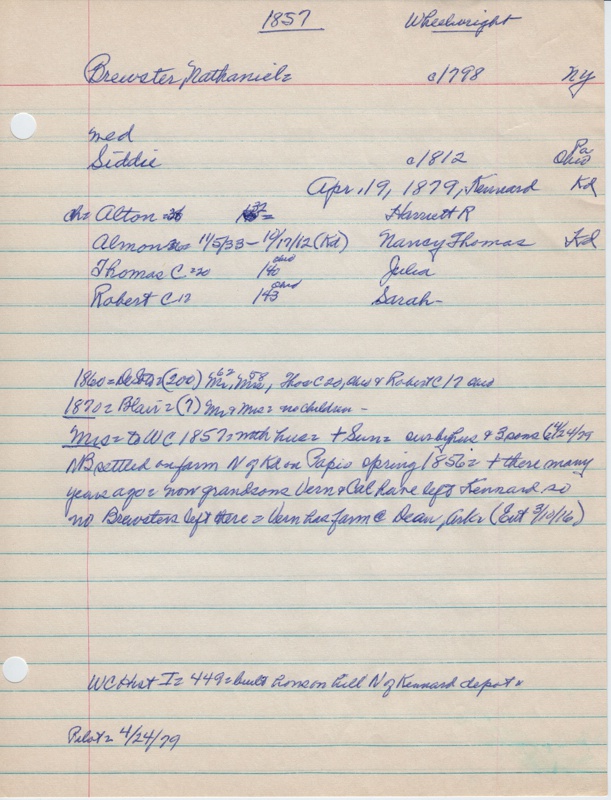 1857 Wheelwright
Brewster, Nathaniel= c1798 NY
med
Siddie c1812 Pa
Ohio
Apr. 19, 1879, Kennard Kd
ch= Alton = Harriett R
Almon 11/5/33 - 12/17/12 (Kd) Nancy Thomas Kd
Thomas C=20 '40 ohio Julia
Robert C 17 '43 ohio Sarah-
1860=DeSoto=(200) Mr 62, Mrs 48, Thos C 20, ohio & Robert C 17 ohio
1870= Blair=(7) Mr & Mrs= no children -
Mrs= to WC 1857= with hus= + Sun= surby hus & 3 sons 4/24/79
NB settled on farm N of Kd on Papio spring 1856= + there many
years ago= now grandsons Vern & Cal have left Kennard so
no Brewsters left there = Vern has farm @ Dean, Ark= (Ent 3/10/16)
WC Hist I= 449= built hom on hill N of Kennard depot=
Pilot= 4/24/79